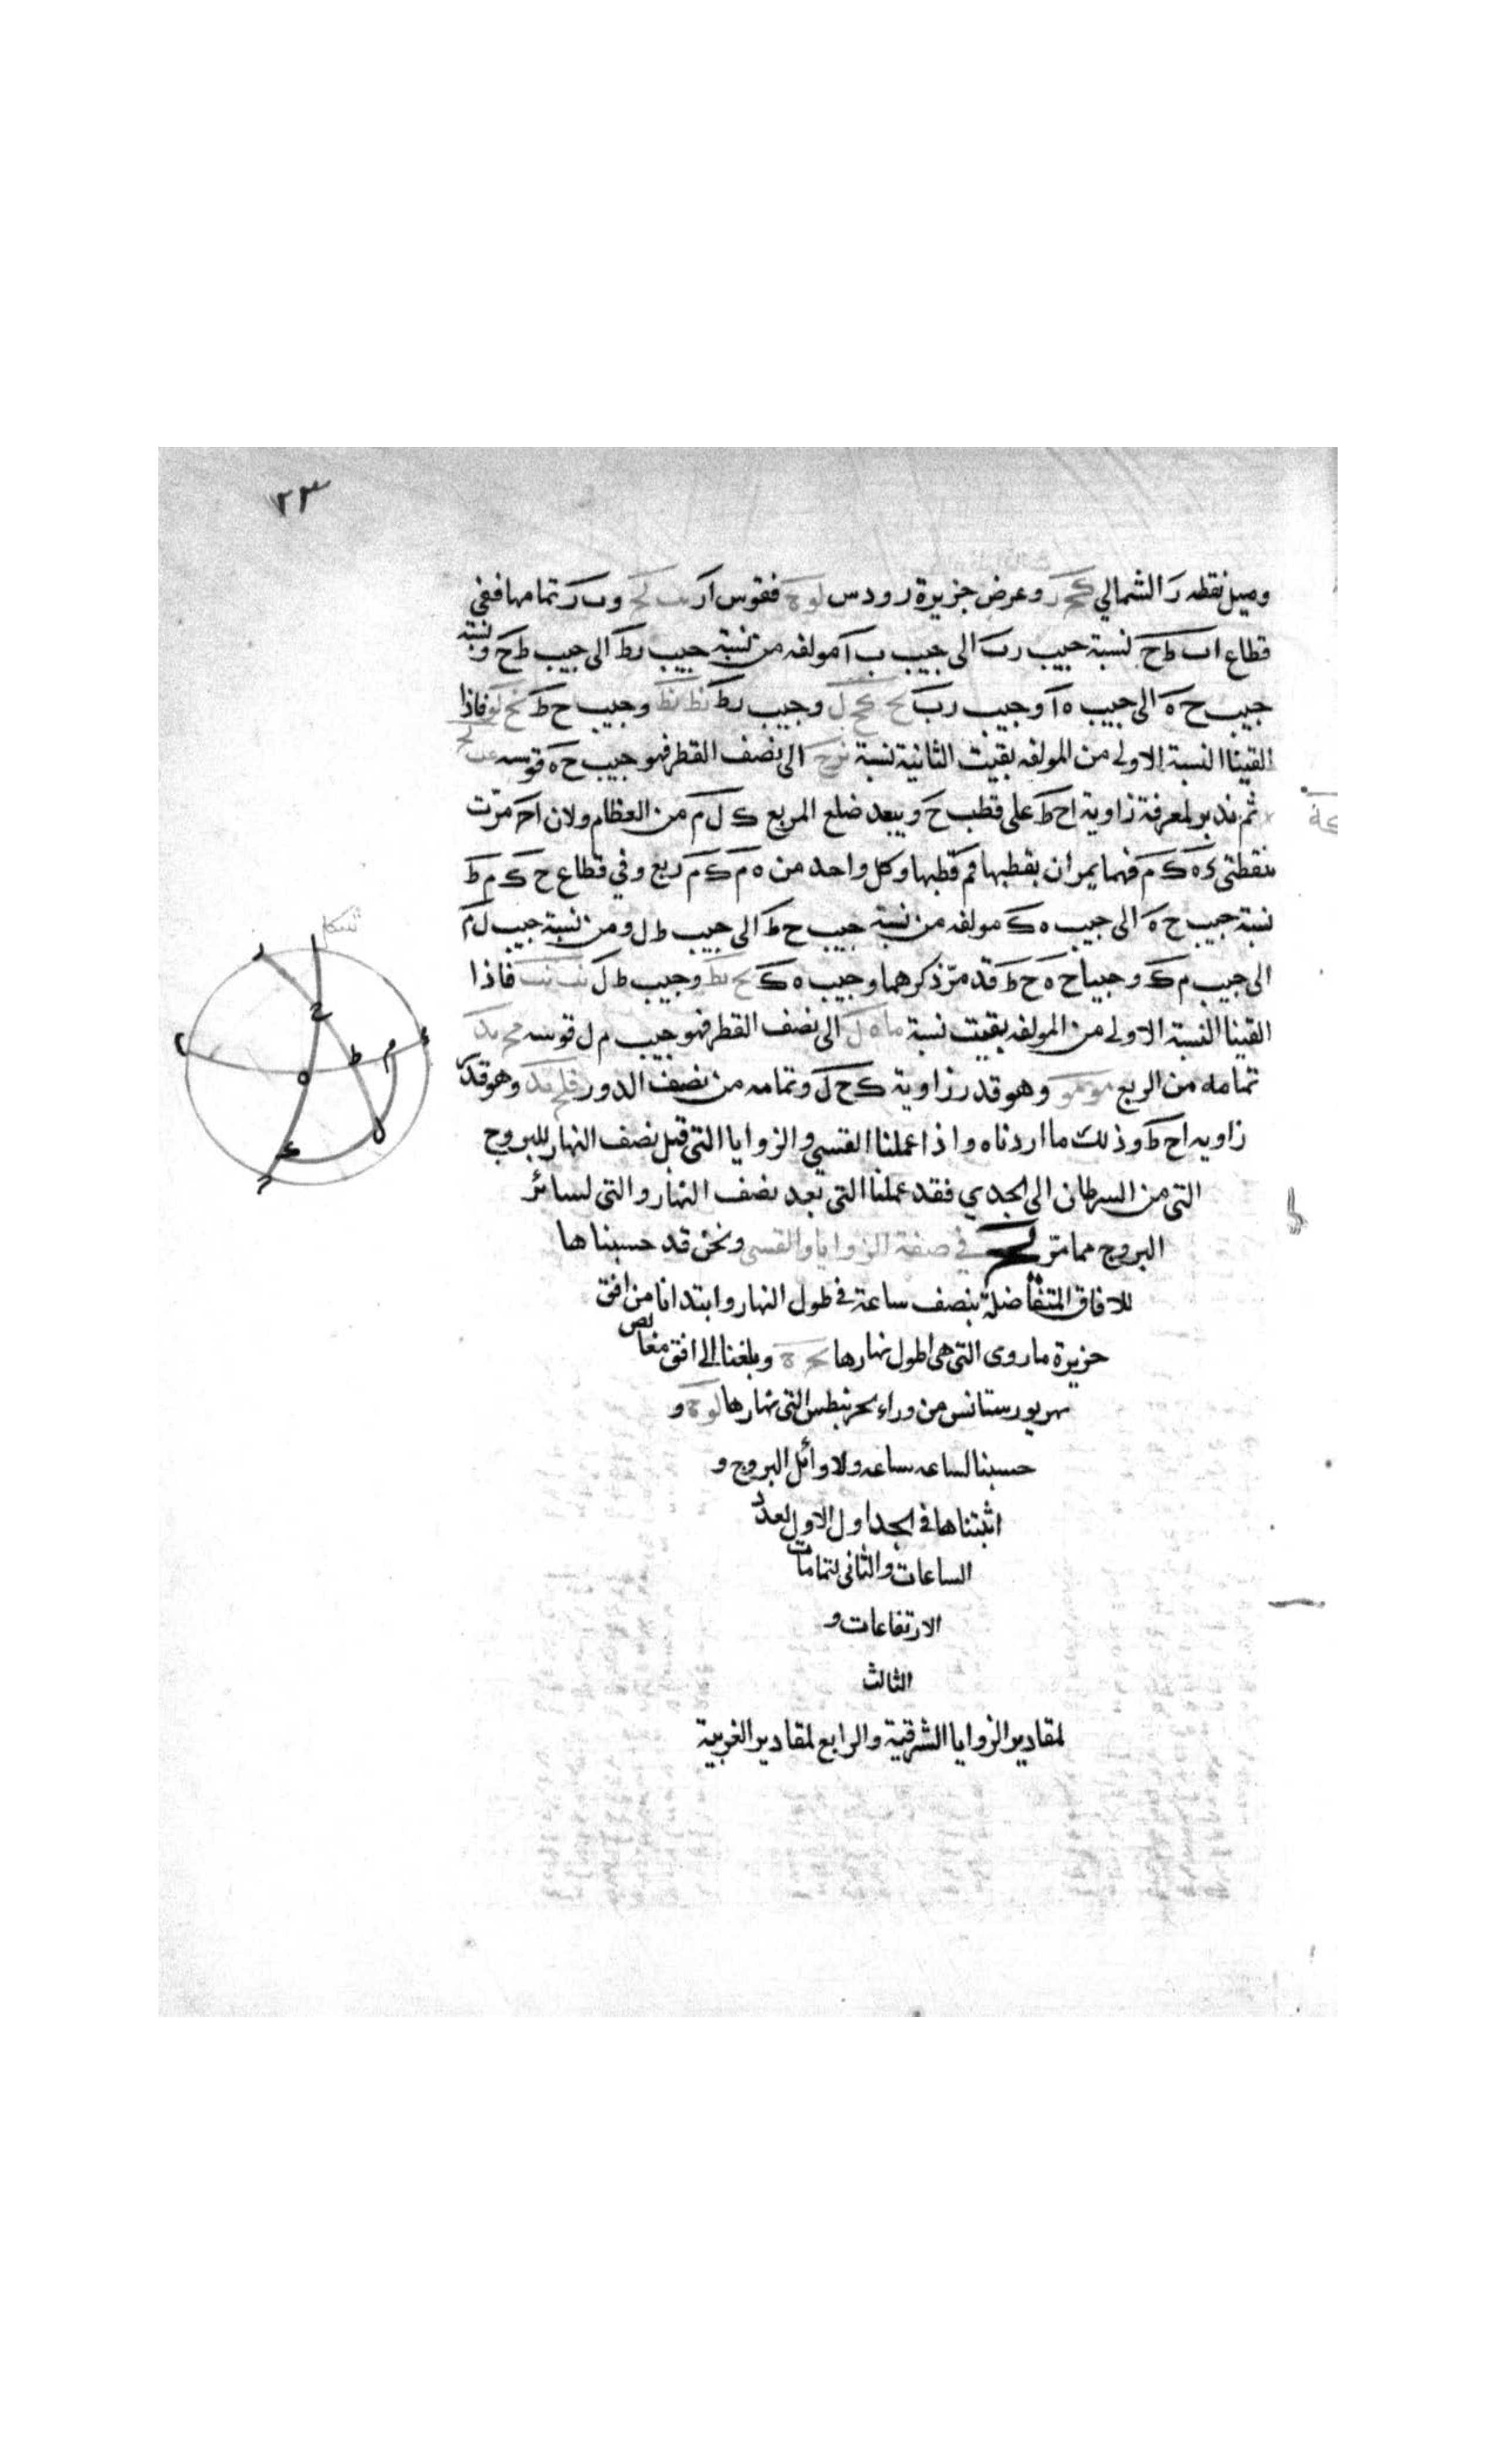 ٢٣
وميل نقطه ر الشمالي كح ر وعرض جزيرة رودس لو ه فقوس ار وب ر تمامها ففي
قطاع اب ط ح نسبة جيب رب الى جيب ب ا مولفه من نسبة جيب ر ط الى جيب ط ح ونسبة
جيب ح ه الى جيب ه ا وجيب رب وجيب ر ط نط نط وجيب ح ط فاذا
القينا النسبة الاولى من المولفه بقيت الثانية نسبة الى نصف القطر فهو جيب ح ه قوسه
ثم ندبر لمعرفة زاوية اح ط على قطب ح وببعد ضلع المربع ك ل م من العظام ولان اح مرّت
بنقطتى ه ك م فهما يمران بقطبها فم قطبها وكل واحد من ه م ك م ربع وفي قطاع ح ك م ط
نسبة جيب ح ه الى جيب ه ك مولفه من نسبة جيب ح ط الى جيب ط ل ومن نسبة جيب ل م
الى جيب م ك وجيبا ح ه ح ط قد مرّ ذكرهما وجيب ه ك وجيب ط ل فاذا
القينا النسبة الاولى من المولفه بقيت نسبة الى نصف القطر فهو جيب م ل قوسه
تمامه من الربع وهو قدر زاوية ك ح ل وتمامه من نصف الدور وهو قدر
زاويه اح ط وذلك ما اردناه واذا عملنا القسي والزوايا التى قبل نصف النهار للبروج
التى من السرطان الى الجدي فقد عملنا التى بعد نصف النهار والتى لسائر
البروج مما مرّ في صفة الزوايا والقسى ونحن قد حسبناها
للافاق المتفاضلة بنصف ساعة في طول النهار وابتدانا من افق
جزيرة ماروى التى هى اطول نهارها وبلغنا الى افق مغايص
نهر بورستانس من وراء بحر بنطس التى نهارها و
حسبنا لساعه ساعه ولاوائل البروج و
اثبتناها في الجداول الاول لعدد
الساعات والثانى لتمامات
الارتفاعات و
الثالث
لمقادير الزوايا الشرقية والرابع لمقادير الغربية
شكل
ر
ح
ا
م
ط
ه
ب
ل
ك
ح